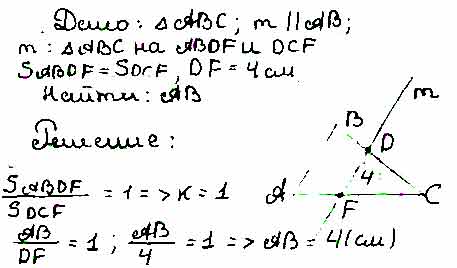 Дано: △ABC; m || AB;
m: △ABC на ABDF и DCF
SABDF = SDCF, DF = 4 см
Найти: AB
Решение:
SABDF/SDCF = 1 => K = 1
AB/DF = 1; AB/4 = 1 => AB = 4 (см)
m
B
D
4
A
F
C